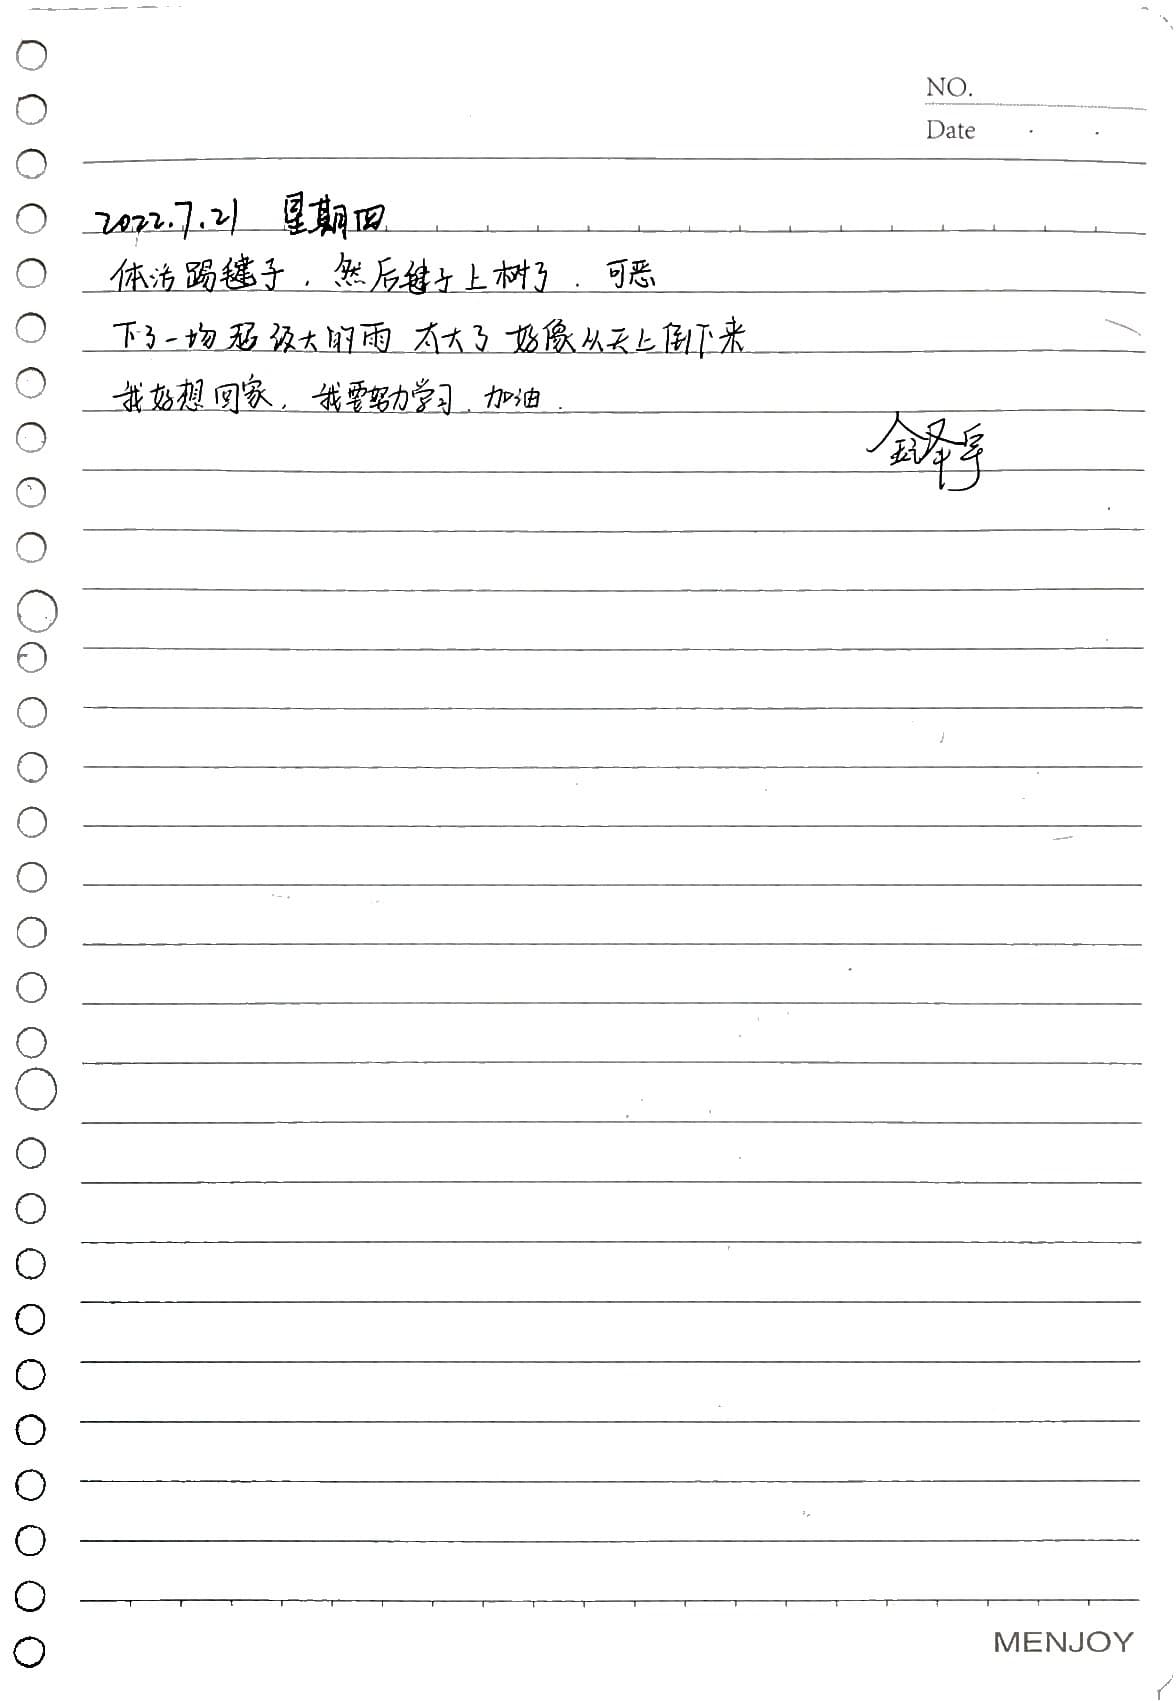 NO.
Date . .
2022.7.21 星期四
体活踢毽子，然后毽子上树了．可恶
下了一场超级大的雨 太大了 好像从天上倒下来
我好想回家，我要努力学习．加油．
金泽宇
MENJOY